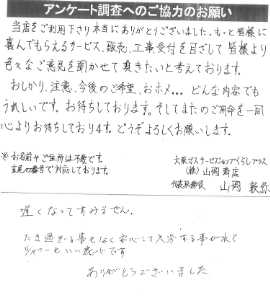 アンケート調査へのご協力のお願い
当店をご利用下さり本当にありがとうございました。もっと皆様に
喜んでもらえるサービス、販売、工事受付を目ざして皆様より
色々なご意見を聞かせて頂きたいと考えております。
おしかり、注意、今後のご希望、おホメ... どんな内容でも
うれしいです。お待ちしております。そしてまたのご用命を一同
心よりお待ちしております。どうぞよろしくお願いします。
※お名前やご住所は不要です。
大阪ガスサービスショップ
(株)山岡商店
代表取締役 山岡
遅くなってすみません。
事もなく安心して
ありがとうございました